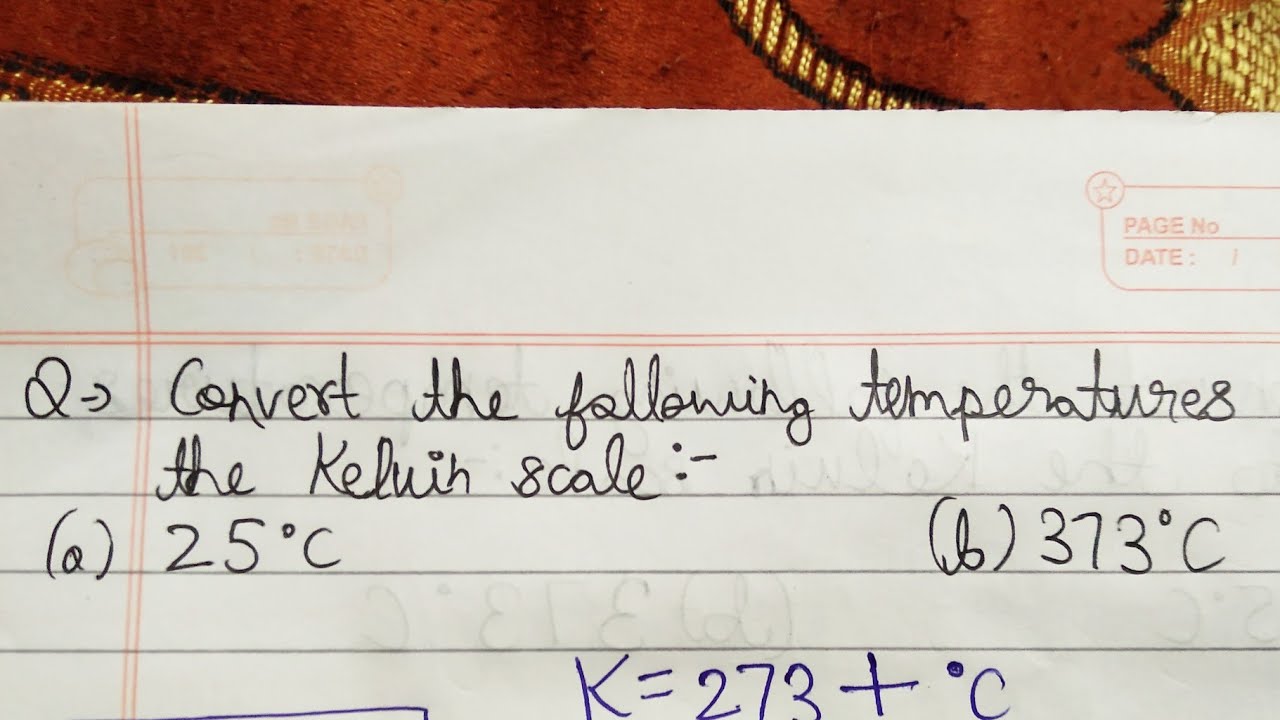 PAGE No
DATE : /
Q→ Convert the following temperatures
the Kelvin scale:-
(a) 25°C (b) 373°C
K=273+°C